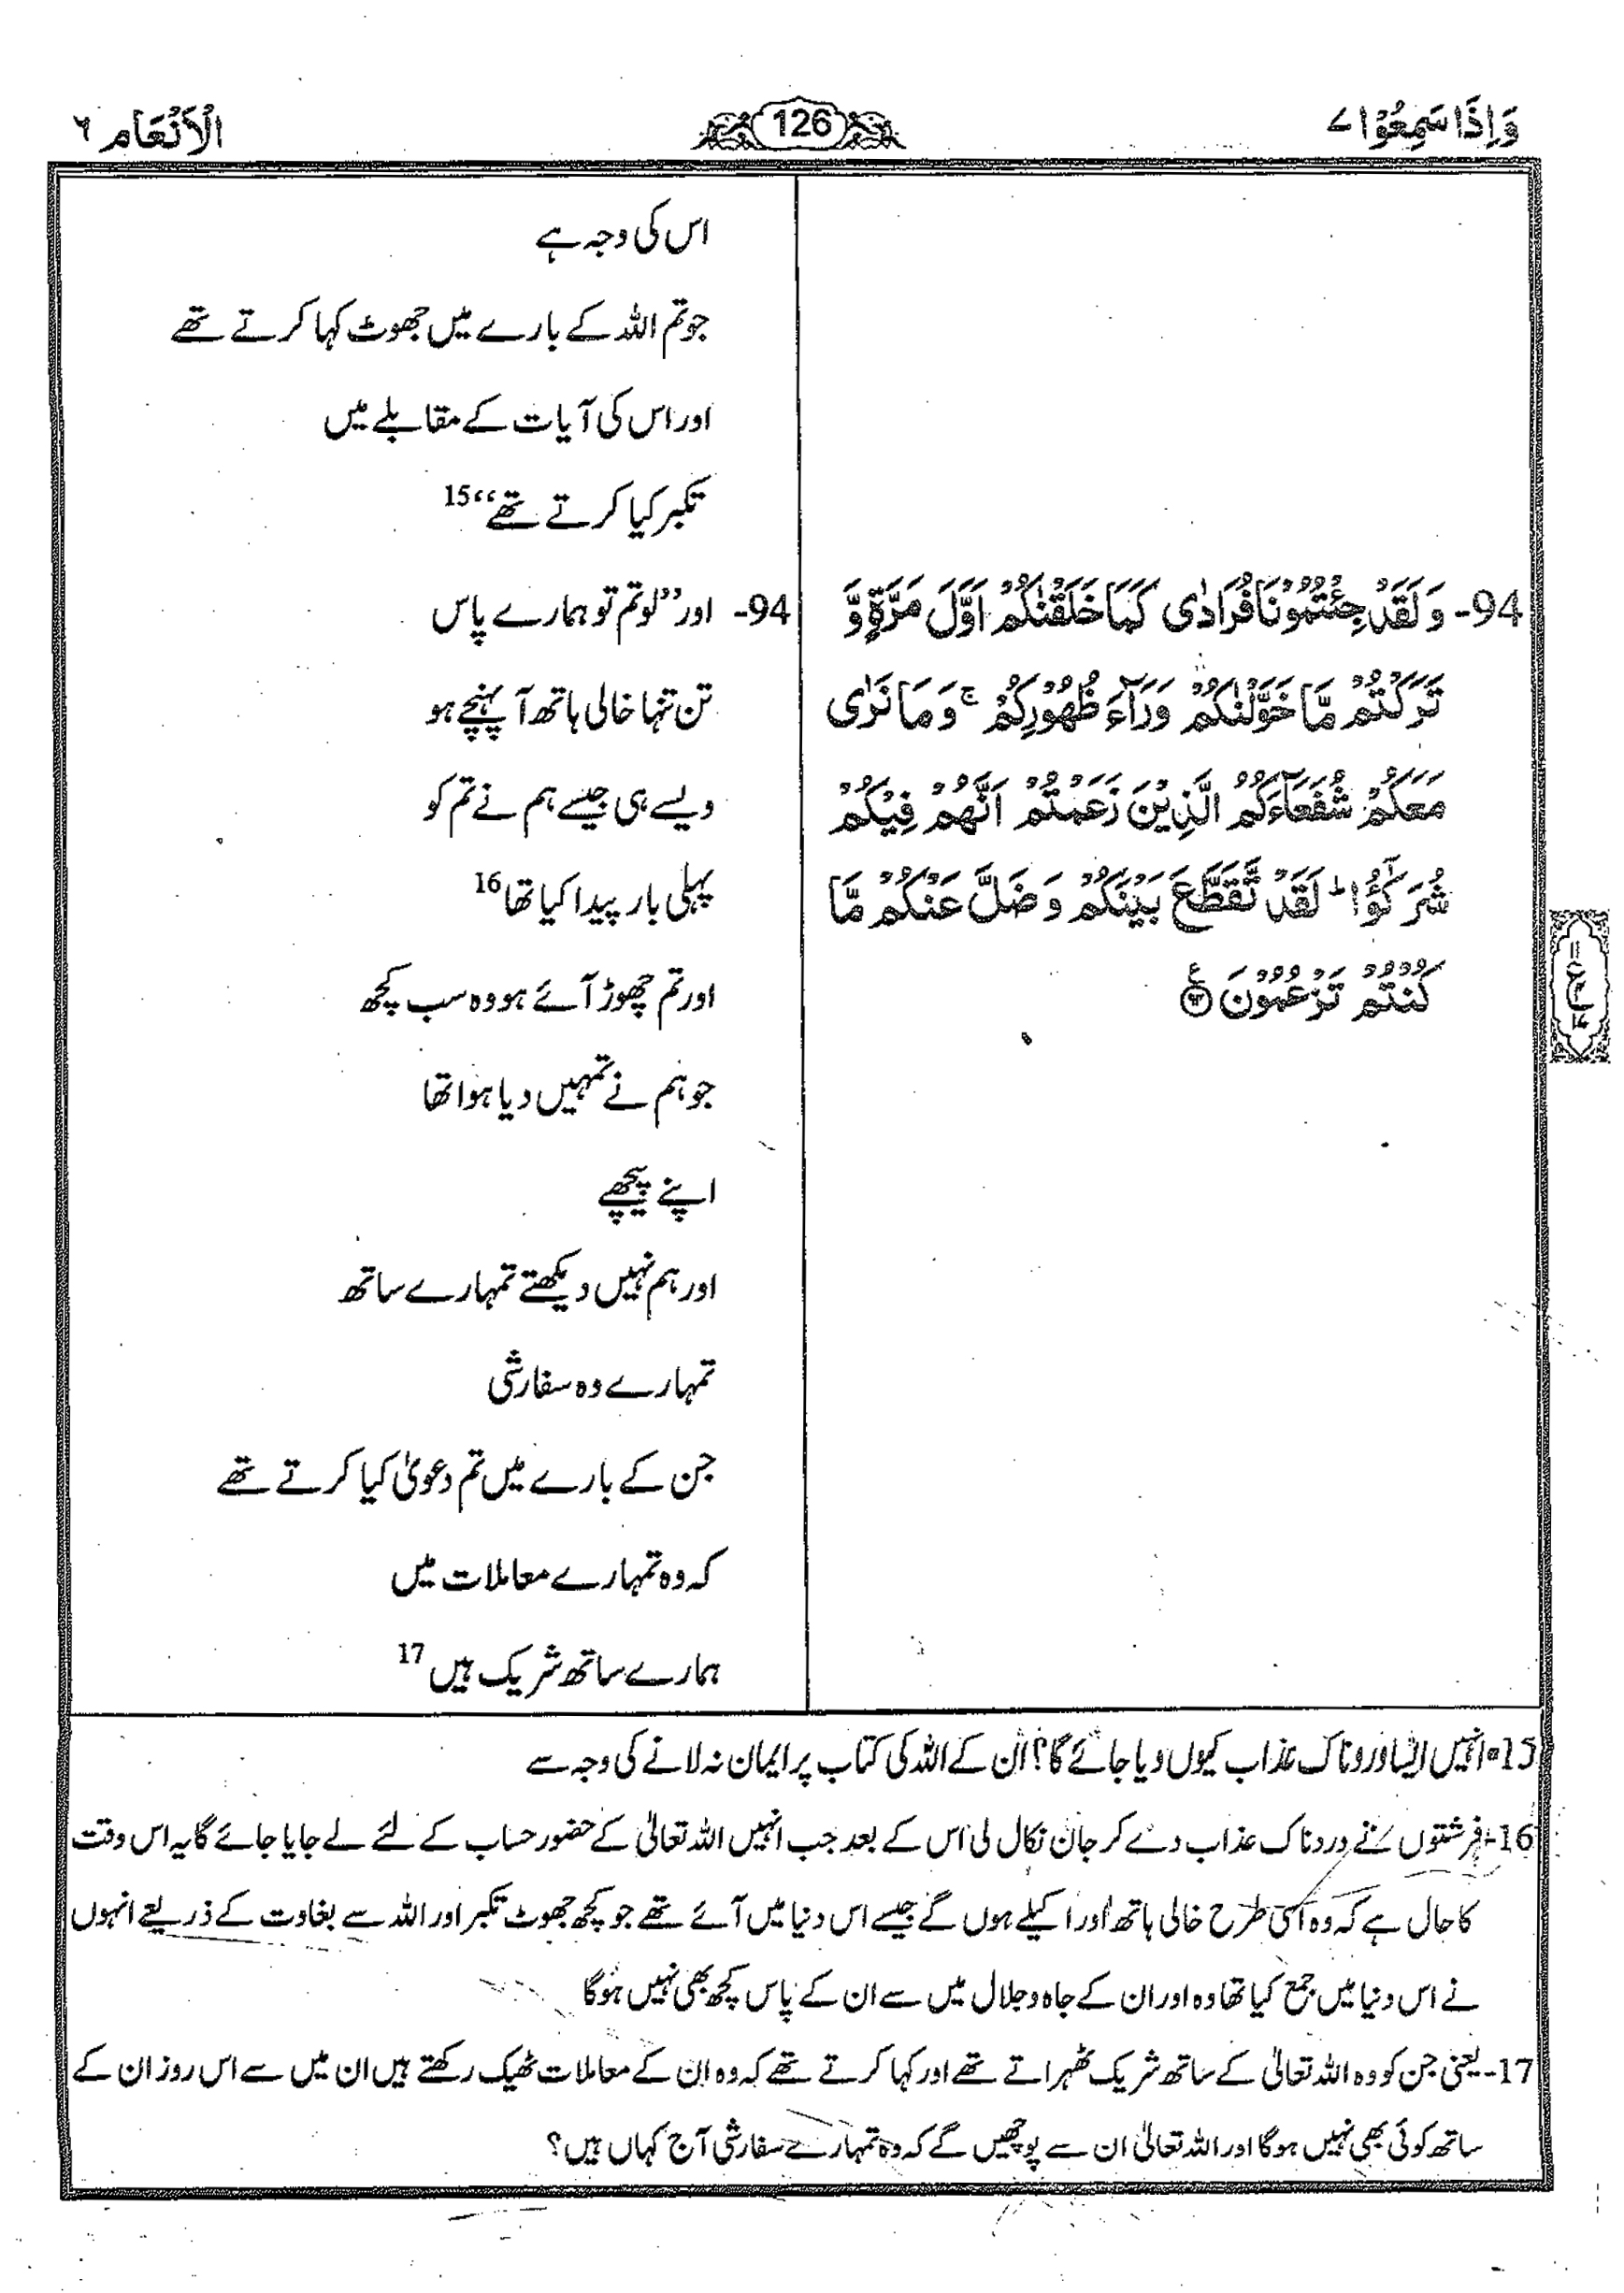 وَاِذَا سَمِعُوْا ۷
126
اَلْاَنْعَام ۶
اس کی وجہ ہے
جو تم اللہ کے بارے میں جھوٹ کہا کرتے تھے
اور اس کی آیات کے مقابلے میں
تکبر کیا کرتے تھے“ 15
94- وَ لَقَدْ جِئْتُمُوْنَا فُرَادٰى كَمَا خَلَقْنٰكُمْ اَوَّلَ مَرَّةٍ وَّ
تَرَكْتُمْ مَّا خَوَّلْنٰكُمْ وَرَآءَ ظُهُوْرِكُمْ ۚ وَ مَا نَرٰى
مَعَكُمْ شُفَعَآءَكُمُ الَّذِيْنَ زَعَمْتُمْ اَنَّهُمْ فِيْكُمْ
شُرَكٰٓؤُا ؕ لَقَدْ تَّقَطَّعَ بَيْنَكُمْ وَ ضَلَّ عَنْكُمْ مَّا
كُنْتُمْ تَزْعُمُوْنَ ﴿۹۴﴾ ع
94- اور ”لو تم تو ہمارے پاس
تن تنہا خالی ہاتھ آ پہنچے ہو
ویسے ہی جیسے ہم نے تم کو
پہلی بار پیدا کیا تھا 16
اور تم چھوڑ آئے ہو وہ سب کچھ
جو ہم نے تمہیں دیا ہوا تھا
اپنے پیچھے
اور ہم نہیں دیکھتے تمہارے ساتھ
تمہارے وہ سفارشی
جن کے بارے میں تم دعویٰ کیا کرتے تھے
کہ وہ تمہارے معاملات میں
ہمارے ساتھ شریک ہیں 17
15- انہیں ایسا دردناک عذاب کیوں دیا جائے گا؟ ان کے اللہ کی کتاب پر ایمان نہ لانے کی وجہ سے
16- فرشتوں نے دردناک عذاب دے کر جان نکال لی اس کے بعد جب انہیں اللہ تعالیٰ کے حضور حساب کے لئے لے جایا جائے گا یہ اس وقت
کا حال ہے کہ وہ اسی طرح خالی ہاتھ اور اکیلے ہوں گے جیسے اس دنیا میں آئے تھے جو کچھ جھوٹ تکبر اور اللہ سے بغاوت کے ذریعے انہوں
نے اس دنیا میں جمع کیا تھا وہ اور ان کے جاہ و جلال میں سے ان کے پاس کچھ بھی نہیں ہوگا
17- یعنی جن کو وہ اللہ تعالیٰ کے ساتھ شریک ٹھہراتے تھے اور کہا کرتے تھے کہ وہ ان کے معاملات ٹھیک رکھتے ہیں ان میں سے اس روز ان کے
ساتھ کوئی بھی نہیں ہوگا اور اللہ تعالیٰ ان سے پوچھیں گے کہ وہ تمہارے سفارشی آج کہاں ہیں؟